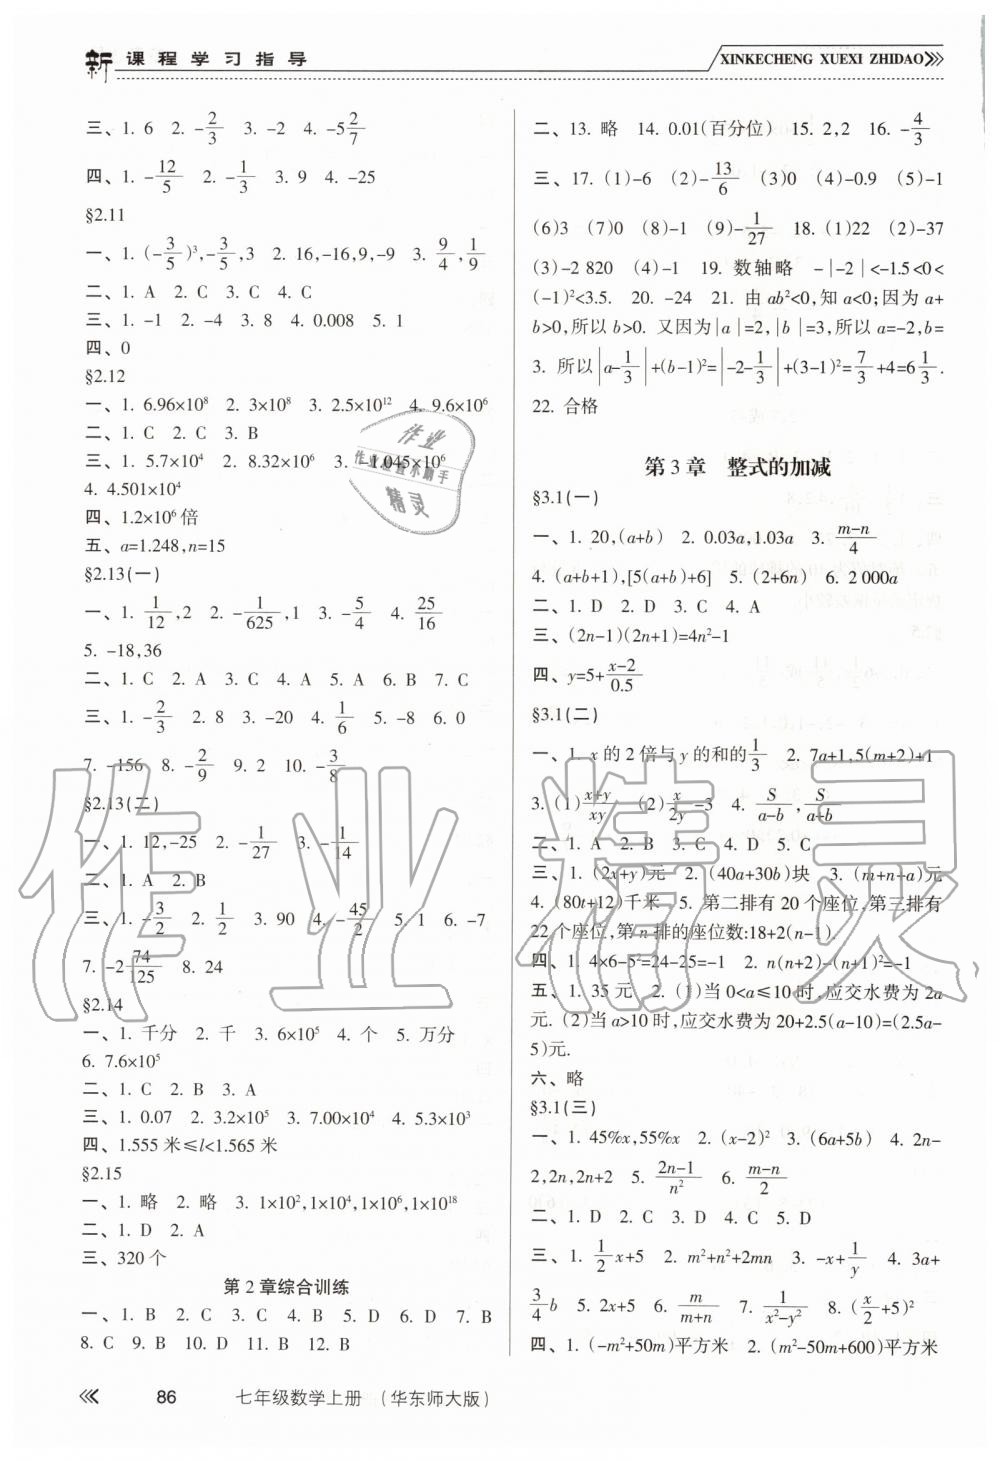 新课程学习指导
XINKECHENG XUEXI ZHIDAO
三、1. 6  2. -2/3  3. -2  4. -5 2/7
四、1. -12/5  2. -1/3  3. 9  4. -25
§2.11
一、1. (-3/5)³,-3/5,3  2. 16,-16,9,-9  3. 9/4,1/9
二、1. A  2. C  3. C  4. C
三、1. -1  2. -4  3. 8  4. 0.008  5. 1
四、0
§2.12
一、1. 6.96×10⁸  2. 3×10⁸  3. 2.5×10¹²  4. 9.6×10⁶
二、1. C  2. C  3. B
三、1. 5.7×10⁴  2. 8.32×10⁶  3. -1.045×10⁶
4. 4.501×10⁴
四、1.2×10⁶ 倍
五、a=1.248,n=15
§2.13(一)
一、1. 1/12,2  2. -1/625,1  3. -5/4  4. 25/16
5. -18,36
二、1. C  2. A  3. C  4. A  5. A  6. B  7. C
三、1. -2/3  2. 8  3. -20  4. 1/6  5. -8  6. 0
7. -156  8. -2/9  9. 2  10. -3/8
§2.13(二)
一、1. 12,-25  2. -1/27  3. -1/14
二、1. A  2. B
三、1. -3/2  2. 1/2  3. 90  4. -45/2  5. 1  6. -7
7. -2 74/125  8. 24
§2.14
一、1. 千分  2. 千  3. 6×10⁵  4. 个  5. 万分
6. 7.6×10⁵
二、1. C  2. B  3. A
三、1. 0.07  2. 3.2×10⁵  3. 7.00×10⁴  4. 5.3×10³
四、1.555 米≤l<1.565 米
§2.15
一、1. 略  2. 略  3. 1×10²,1×10⁴,1×10⁶,1×10¹⁸
二、1. D  2. A
三、320 个
第 2 章综合训练
一、1. B  2. C  3. C  4. B  5. D  6. D  7. B
8. C  9. B  10. D  11. B  12. B
二、13. 略  14. 0.01(百分位)  15. 2,2  16. -4/3
三、17. (1)-6  (2)-13/6  (3)0  (4)-0.9  (5)-1
(6)3  (7)0  (8)-1  (9)-1/27  18. (1)22  (2)-37
(3)-2 820  (4)-1  19. 数轴略  -|-2|<-1.5<0<
(-1)²<3.5.  20. -24  21. 由 ab²<0,知 a<0;因为 a+
b>0,所以 b>0. 又因为|a|=2,|b|=3,所以 a=-2,b=
3. 所以|a-1/3|+(b-1)²=|-2-1/3|+(3-1)²=7/3+4=6 1/3.
22. 合格
第 3 章  整式的加减
§3.1(一)
一、1. 20,(a+b)  2. 0.03a,1.03a  3. (m-n)/4
4. (a+b+1),[5(a+b)+6]  5. (2+6n)  6. 2 000a
二、1. D  2. D  3. C  4. A
三、(2n-1)(2n+1)=4n²-1
四、y=5+(x-2)/0.5
§3.1(二)
一、1. x 的 2 倍与 y 的和的1/3  2. 7a+1,5(m+2)+1
3. (1)(x+y)/xy  (2)x/2y-3  4. S/(a-b),S/(a+b)
二、1. A  2. B  3. C  4. D  5. C
三、1. (2x+y)元  2. (40a+30b)块  3. (m+n-a)元
4. (80t+12)千米  5. 第二排有 20 个座位,第三排有
22 个座位,第 n 排的座位数:18+2(n-1).
四、1. 4×6-5²=24-25=-1  2. n(n+2)-(n+1)²=-1
五、1. 35 元  2. (1)当 0<a≤10 时,应交水费为 2a
元. (2)当 a>10 时,应交水费为 20+2.5(a-10)=(2.5a-
5)元.
六、略
§3.1(三)
一、1. 45%x,55%x  2. (x-2)²  3. (6a+5b)  4. 2n-
2,2n,2n+2  5. (2n-1)/n²  6. (m-n)/2
二、1. D  2. C  3. D  4. C  5. D
三、1. 1/2x+5  2. m²+n²+2mn  3. -x+1/y  4. 3a+
3/4b  5. 2x+5  6. m/(m+n)  7. 1/(x²-y²)  8. (x/2+5)²
四、1. (-m²+50m)平方米  2. (m²-50m+600)平方米
86  七年级数学上册  (华东师大版)
作业
精灵
作业精灵